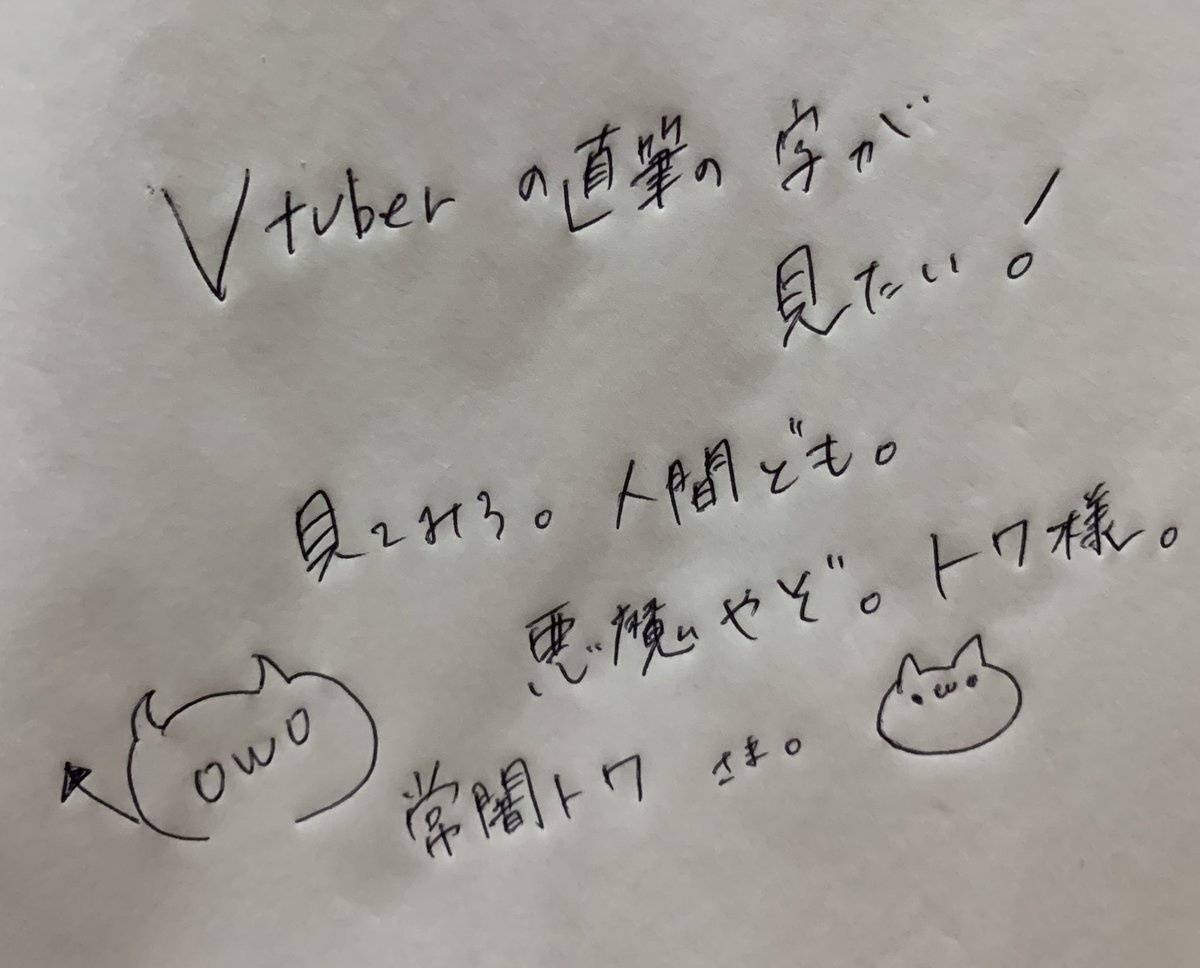 Vtuberの直筆の字が
見たい!
見てみろ。人間ども。
悪魔やぞ。トワ様。
owo
常闇トワ さま。